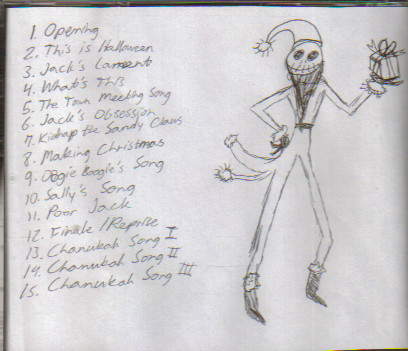 1. Opening
2. This is Halloween
3. Jack's Lament
4. What's This
5. The Town Meeting Song
6. Jack's Obsession
7. Kidnap the Sandy Claws
8. Making Christmas
9. Oogie Boogie's Song
10. Sally's Song
11. Poor Jack
12. Finale / Reprise
13. Chanukah Song I
14. Chanukah Song II
15. Chanukah Song III